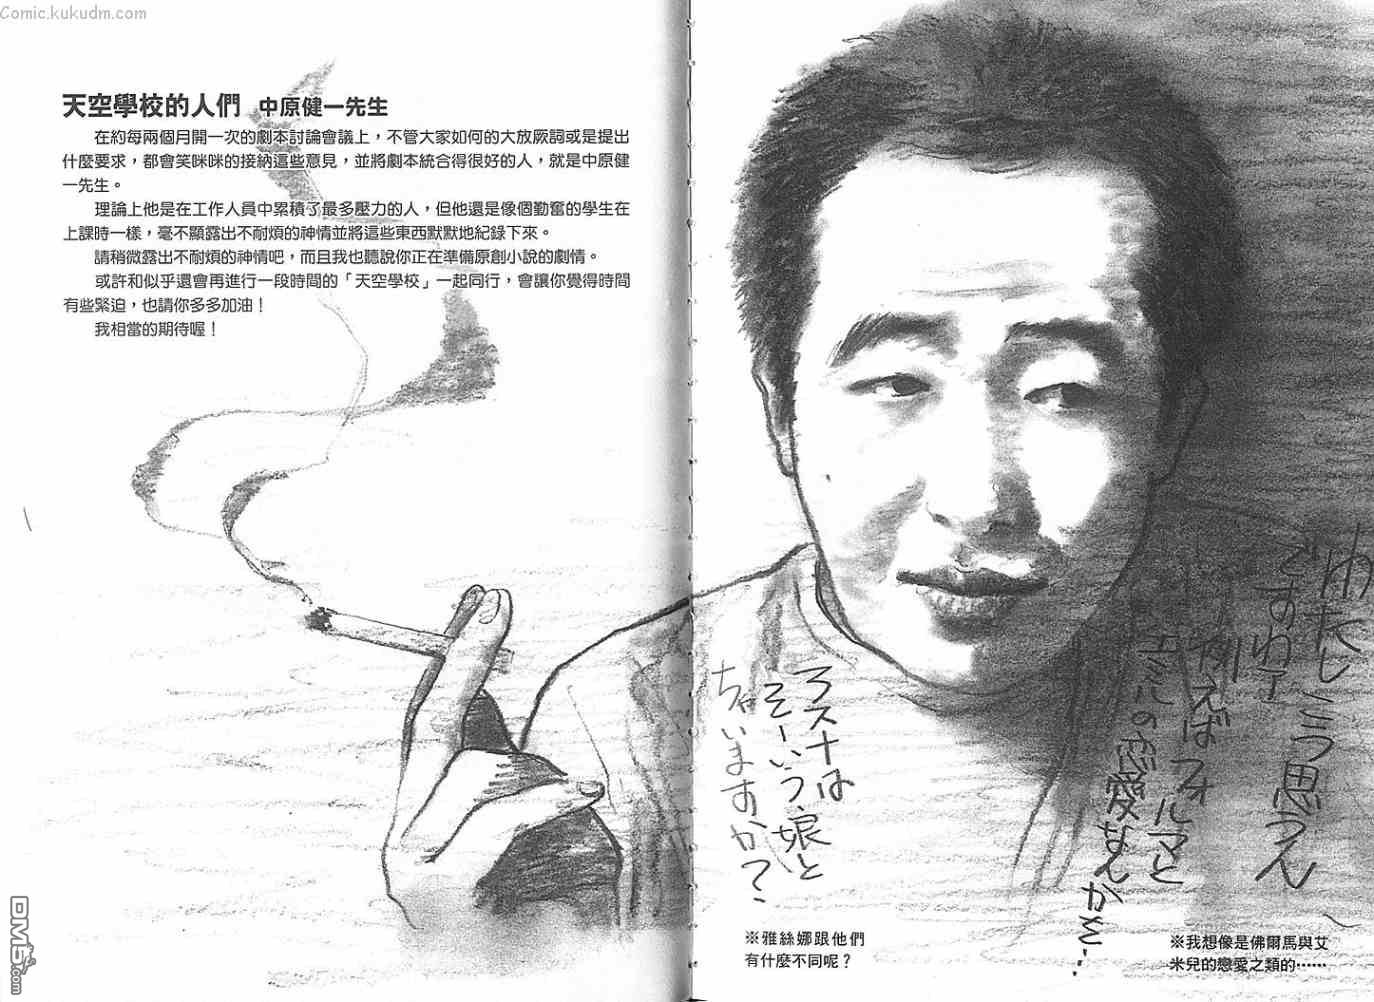 Comic.kukudm.com
天空學校的人們 中原健一先生
在約每兩個月開一次的劇本討論會議上，不管大家如何的大放厥詞或是提出
什麼要求，都會笑咪咪的接納這些意見，並將劇本統合得很好的人，就是中原健
一先生。
理論上他是在工作人員中累積了最多壓力的人，但他還是像個勤奮的學生在
上課時一樣，毫不顯露出不耐煩的神情並將這些東西默默地紀錄下來。
請稍微露出不耐煩的神情吧，而且我也聽說你正在準備原創小說的劇情。
或許和似乎還會再進行一段時間的「天空學校」一起同行，會讓你覺得時間
有些緊迫，也請你多多加油！
我相當的期待喔！
思うん
ですわ
例えばフォルマと
エミルの恋愛なんかを…
※我想像是佛爾馬與艾
米兒的戀愛之類的……
ラスナは
そーいう娘と
ちゃいますか？
※雅絲娜跟他們
有什麼不同呢？
DM5.com